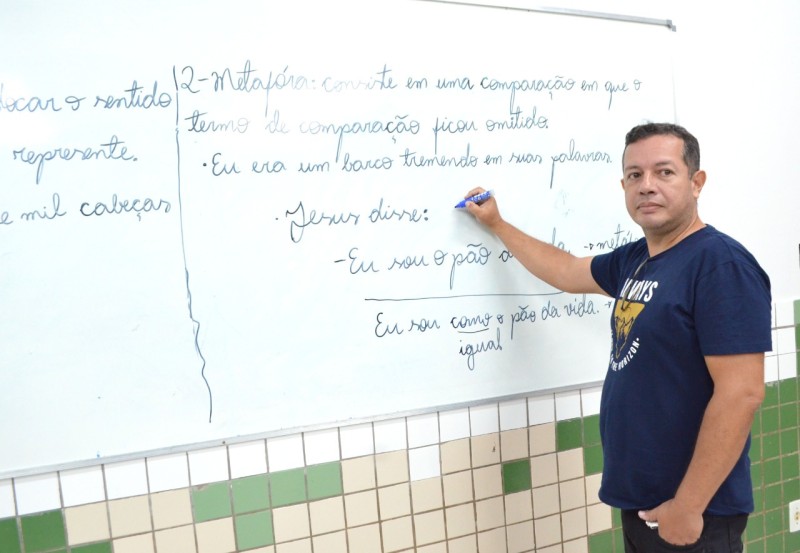 locar o sentido
represente.
e mil cabeças
2-Metafóra: consiste em uma comparação em que o
termo de comparação ficou omitido.
· Eu era um barco tremendo em suas palavras
· Jesus disse:
- Eu sou o pão
Eu sou como o pão da vida.
igual